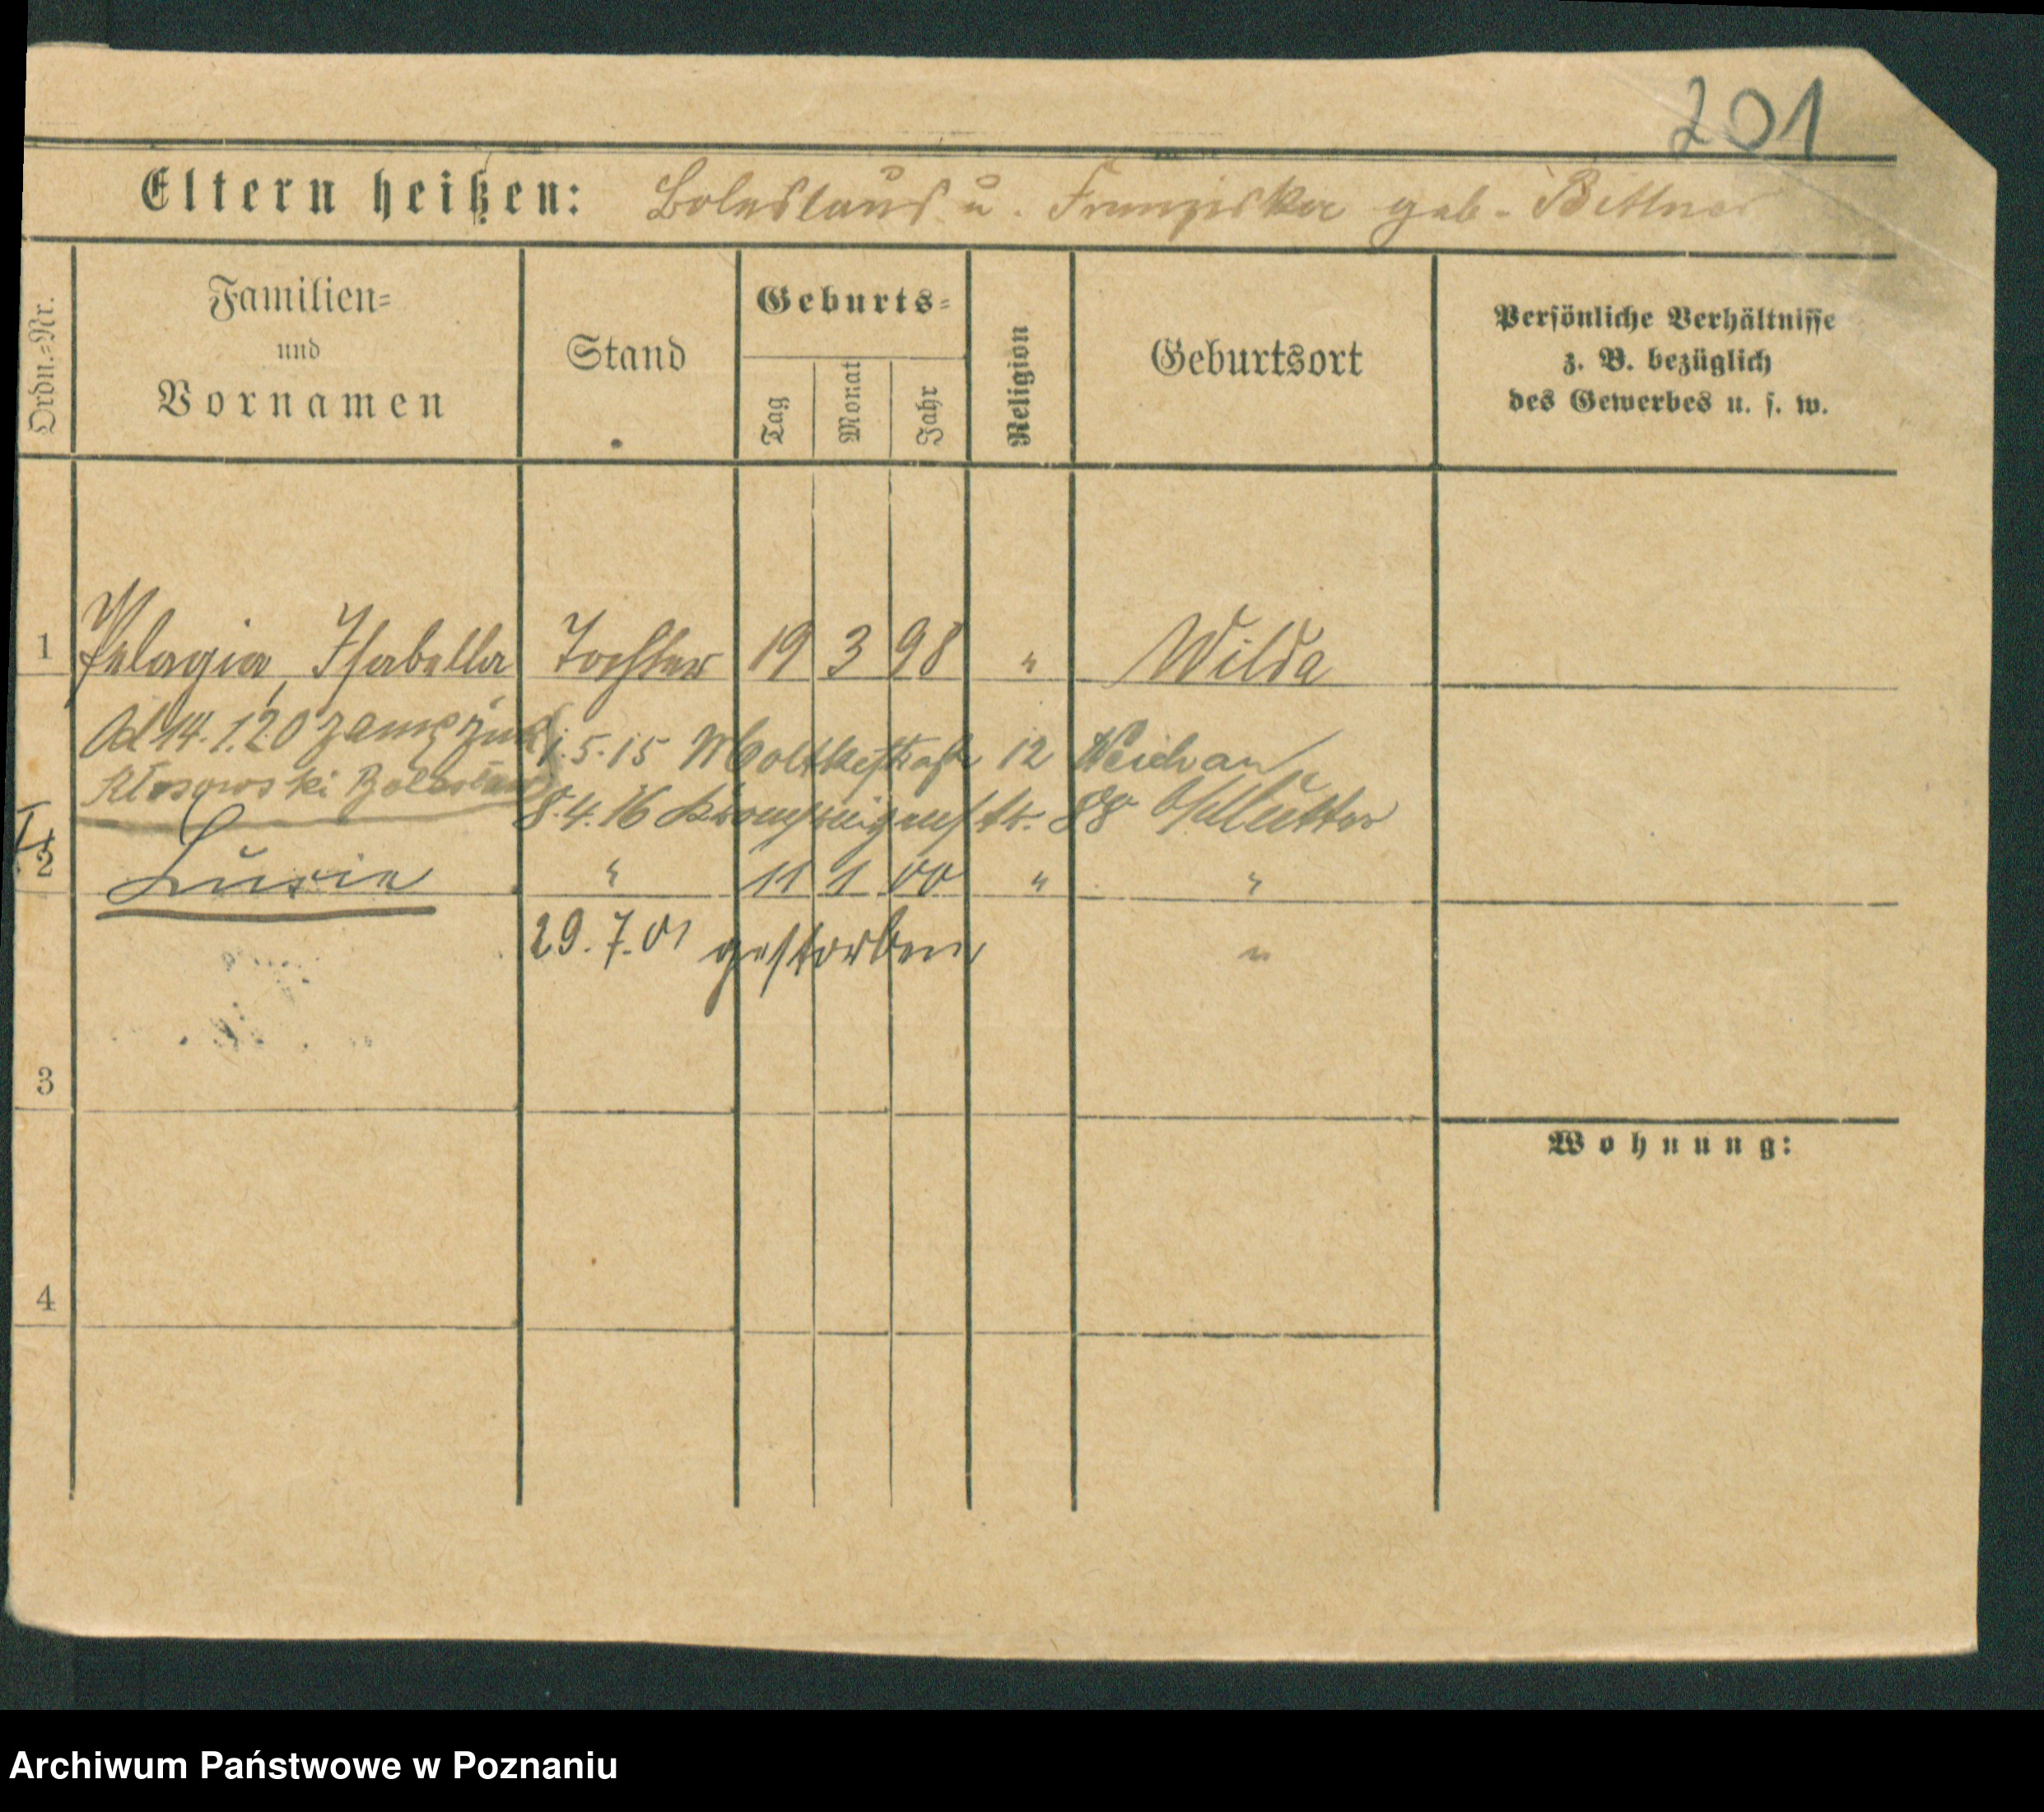 201
Eltern heißen: Boleslaus u. Franziska geb. Bittner
Ordn.-Nr.
Familien-
und
Vornamen
Stand
Geburts-
Tag
Monat
Jahr
Religion
Geburtsort
Persönliche Verhältnisse
z. B. bezüglich
des Gewerbes u. s. w.
1 Pelagia, Isabella Tochter 19 3 98 " Wilda
Od 14.1.20 zamęż
1.5.15 Moltkestraße 12
Kłosowski Bolesław
8.4.16 Kronprinzenstr. 88 b/Mutter
2 Luzie " 11 1 00 " "
29.7.01 gestorben "
3
Wohnung:
4
Archiwum Państwowe w Poznaniu